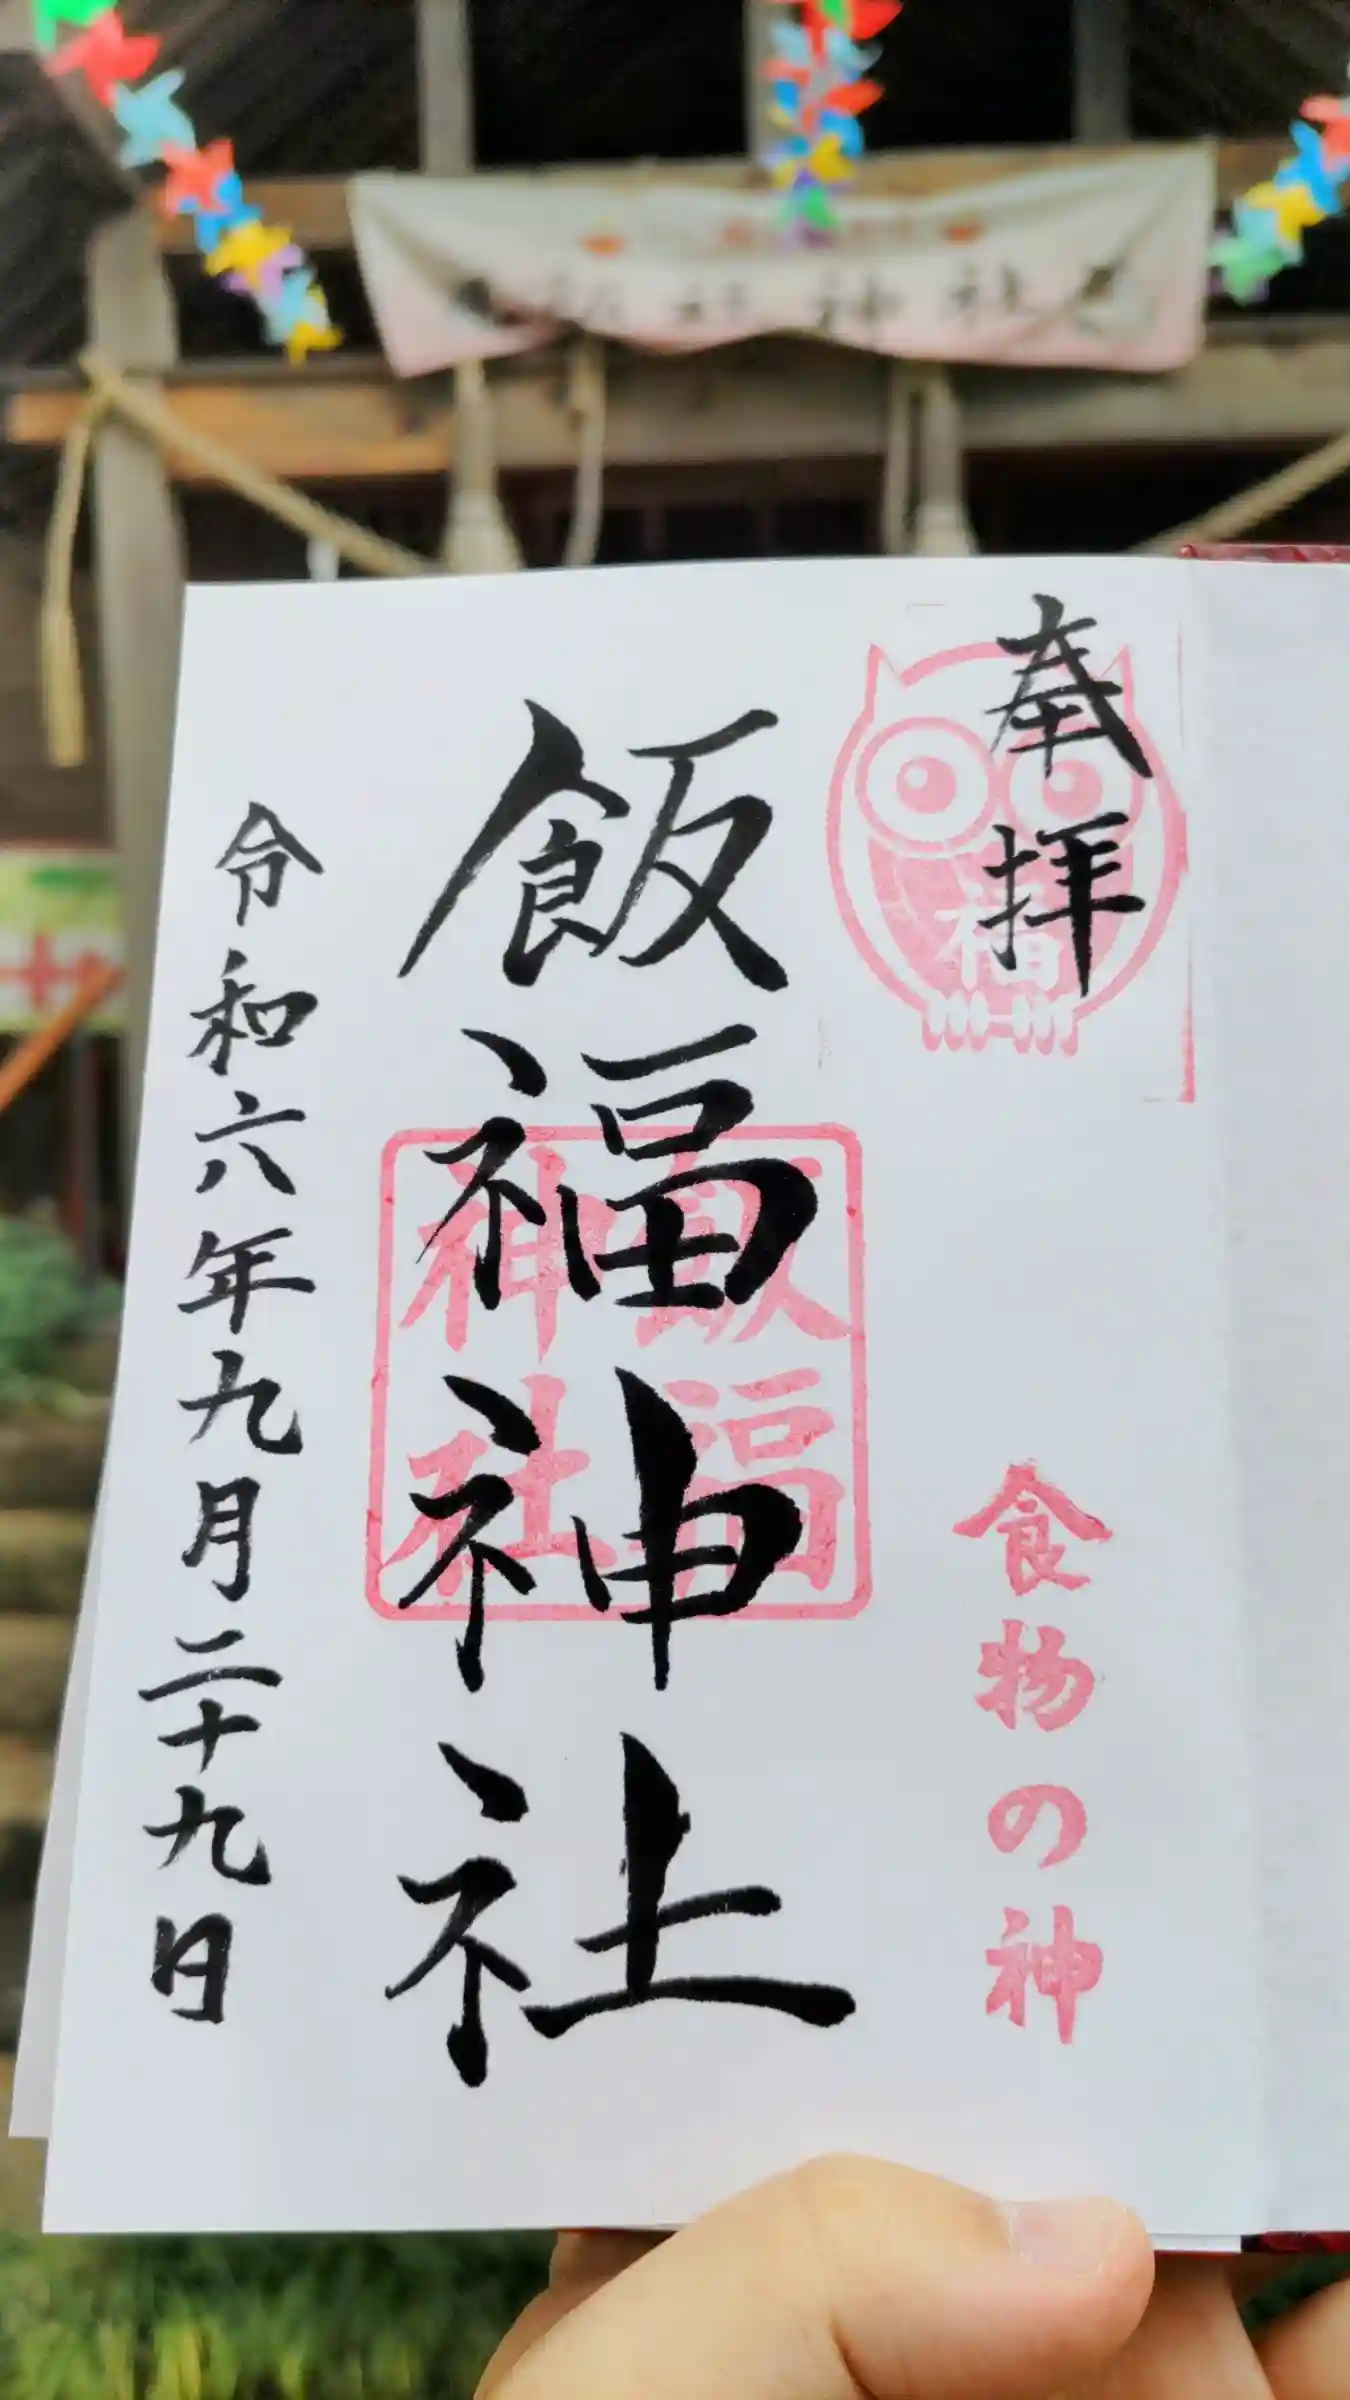 奉拝
福
食物の神
飯福神社
飯福
神社
令和六年九月二十九日
神社